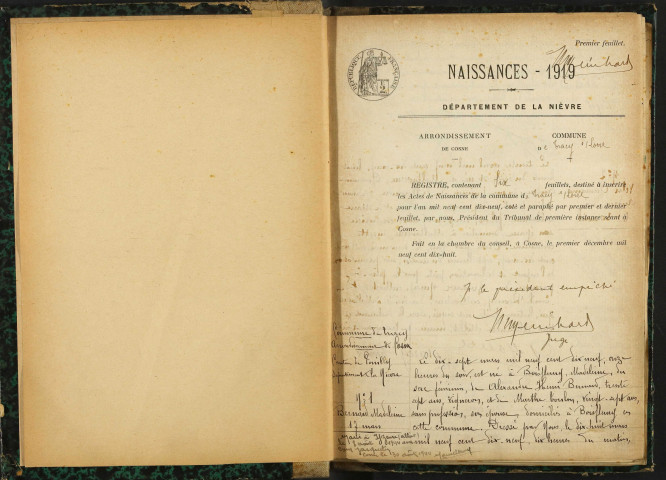 Premier feuillet.
RÉPUBLIQUE FRANÇAISE
NAISSANCES - 1919
DÉPARTEMENT DE LA NIÈVRE
ARRONDISSEMENT
DE COSNE
COMMUNE
de Tracy s/Loire
REGISTRE, contenant six feuillets, destiné à inscrire
les Actes de Naissances de la commune d
pour l'an mil neuf cent dix-neuf, coté et paraphé par premier et dernier
feuillet, par nous, Président du Tribunal de première instance séant à
Cosne.
Fait en la chambre du conseil, à Cosne, le premier décembre mil
neuf cent dix-huit.
P. le président empêché
Juge
Commune de Tracy
Arrondissement de Cosne
Canton de Pouilly
Département de la Nièvre
N° 1
Bernard Madeleine
17 mars
Le dix-sept mars mil neuf cent dix neuf, onze
heures du soir, est née à Boisfleury, Madeleine, du
sexe féminin, de Alexandre Henri Bernard, trente
sept ans, vigneron, et de Marthe, vingt-sept ans,
sans profession, son épouse, domiciliés à Boisfleury en
cette commune. Dressé par Nous, le dix-huit mars
mil neuf cent dix-neuf, dix heures du matin,